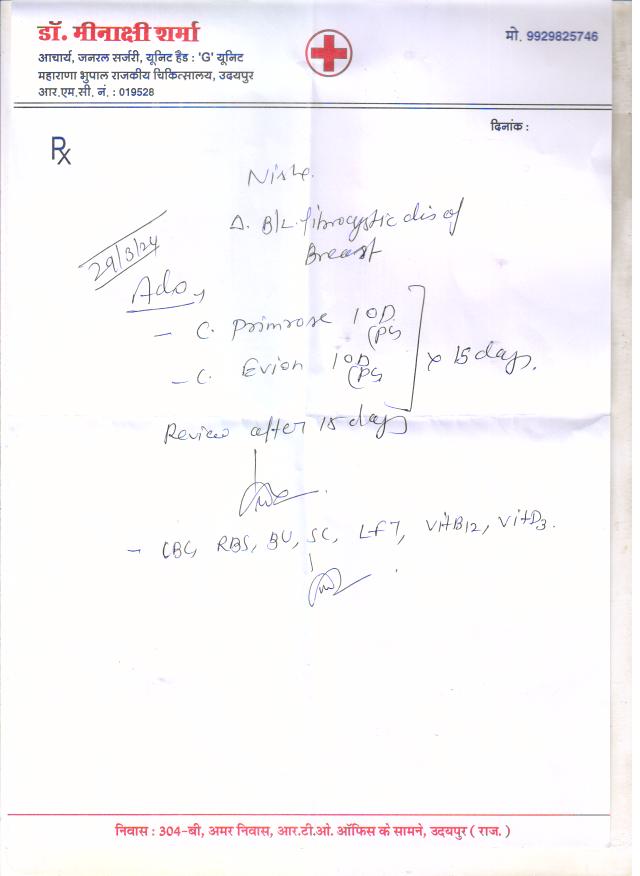 डॉ. मीनाक्षी शर्मा
आचार्य, जनरल सर्जरी, यूनिट हैड : 'G' यूनिट
महाराणा भुपाल राजकीय चिकित्सालय, उदयपुर
आर.एम.सी. नं. : 019528
मो. 9929825746
दिनांक :
Rx
Δ. B/L fibrocystic dis of
Breast
29/3/24
Adv,
- C. Primrose 1 OD
- C. Evion 1 OD
x 15 days.
Review after 15 days
- CBC, RBS, BU, SC, LFT, VitB12, VitD3.
निवास : 304-बी, अमर निवास, आर.टी.ओ. ऑफिस के सामने, उदयपुर ( राज. )